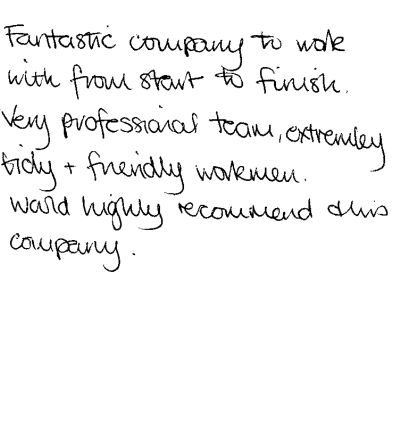 Fantastic company to work
with from start to finish.
Very professional team, extremley
tidy + friendly workmen.
Would highly recommend this
company.